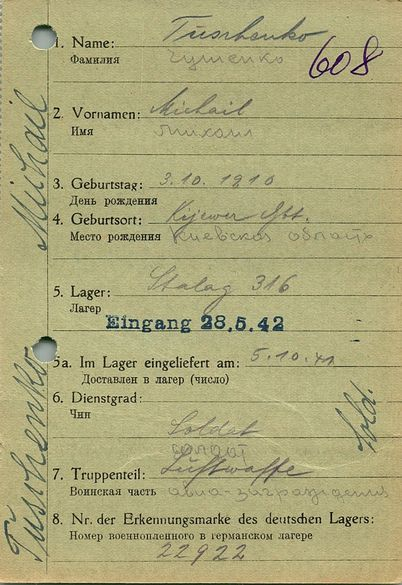 1. Name: Tusrhenko
Фамилия Гушенко
608
2. Vornamen: Michail
Имя Михаил
3. Geburtstag: 3.10.1910
День рождения
4. Geburtsort: Kijewer Gbt.
Место рождения Киевская область
5. Lager: Stalag 316
Лагер
Eingang 28.5.42
5a. Im Lager eingeliefert am: 5.10.41
Доставлен в лагер (число)
6. Dienstgrad:
Чин
Soldat
солдат
7. Truppenteil: Luftwaffe
Воинская часть авиа-заграждения
8. Nr. der Erkennungsmarke des deutschen Lagers:
Номер военнопленного в германском лагере
22922
Tusrhenko Michail
Sold.